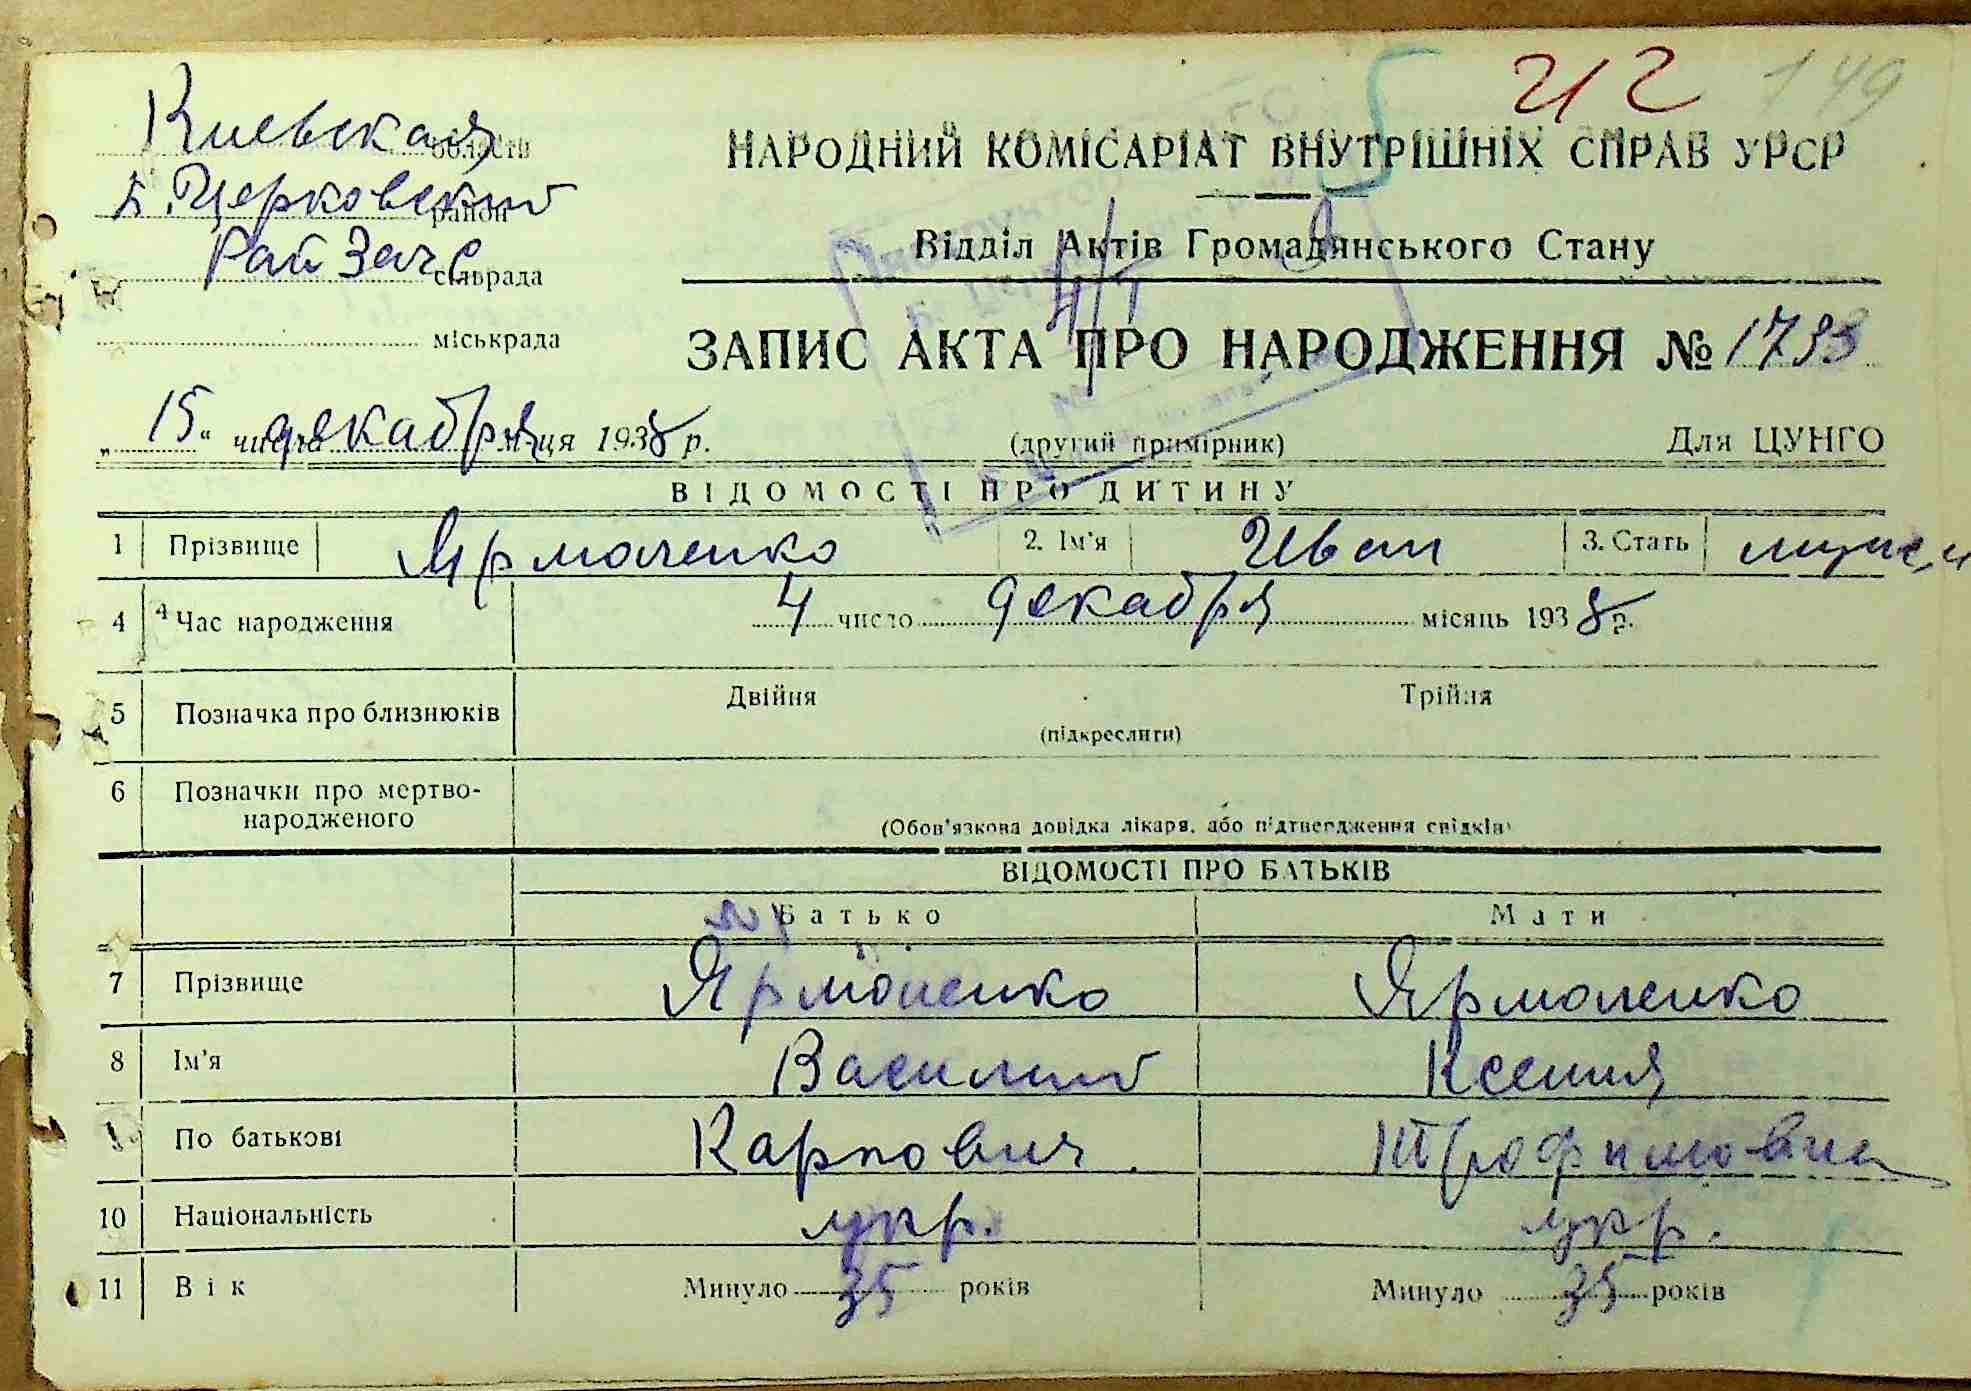 212 149
Киевская область
Б. Церковский район
РайЗагс сільрада
міськрада
НАРОДНИЙ КОМІСАРІАТ ВНУТРІШНІХ СПРАВ УРСР
Відділ Актів Громадянського Стану
ЗАПИС АКТА ПРО НАРОДЖЕННЯ № 1733
„15“ числа декабря м-ця 1938 р. (другий примірник) Для ЦУНГО
ВІДОМОСТІ ПРО ДИТИНУ
1 Прізвище Ярмоленко 2. Ім'я Иван 3. Стать
4 Час народження 4 число декабря місяць 1938 р.
5 Позначка про близнюків Двійня Трійня
(підкреслити)
6 Позначки про мертво-
народженого
(Обов'язкова довідка лікаря, або підтвердження свідків)
ВІДОМОСТІ ПРО БАТЬКІВ
Батько Мати
7 Прізвище Ярмоленко Ярмоленко
8 Ім'я Василий Ксения
По батькові Карпович Трофимовна
10 Національність укр. укр.
11 Вік Минуло 35 років Минуло 35 років